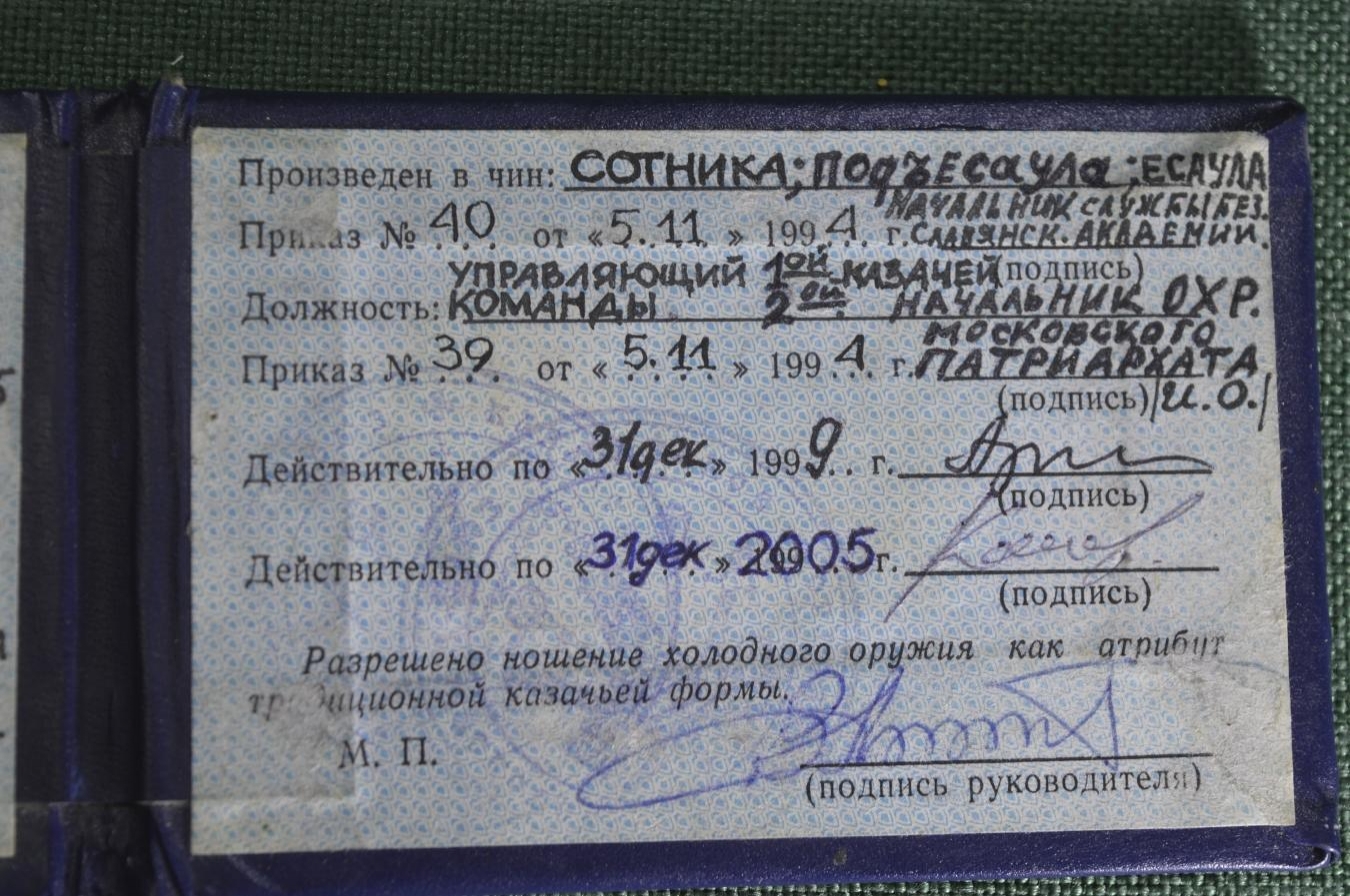 Произведен в чин: СОТНИКА; ПОДЪЕСАУЛА; ЕСАУЛА
НАЧАЛЬНИК СЛУЖБЫ БЕЗ.
Приказ № 40 от «5.11» 1994 г. СЛАВЯНСК. АКАДЕМИИ.
УПРАВЛЯЮЩИЙ 1ой КАЗАЧЕЙ (подпись)
Должность: КОМАНДЫ 2ой. НАЧАЛЬНИК ОХР.
МОСКОВСКОГО
Приказ № 39 от «5.11» 1994 г. ПАТРИАРХАТА
(подпись) /И.О./
Действительно по «31 дек» 1999 г.
(подпись)
Действительно по «31 дек» 2005 г.
(подпись)
Разрешено ношение холодного оружия как атрибут
традиционной казачьей формы.
М. П.
(подпись руководителя)